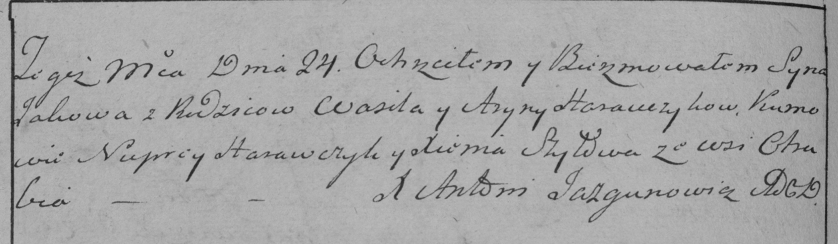 Tegiż Mca Dnia 24. Ochrzciłem y Bierzmowałem Syna
Jakowa z Rodzicow Wasila y Aryny Harawczykow, Kumo
wie Nuprey Harawczyk y Xienia Szyłowa ze wsi Otru
bia — — X Antoni Jazgunowicz